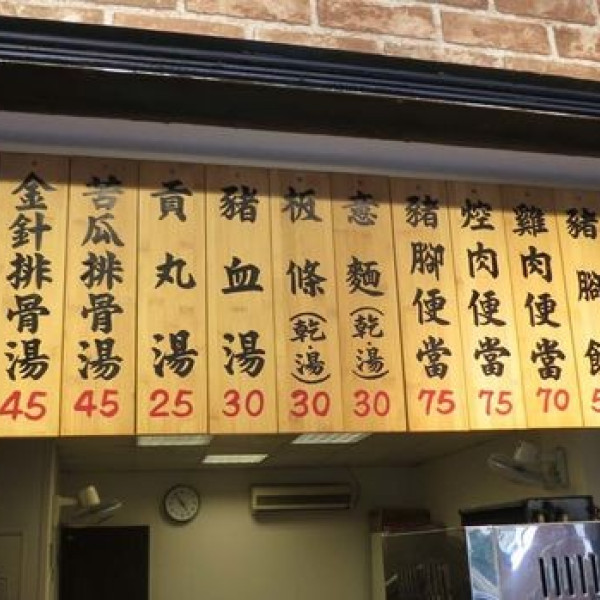 豬腳飯
雞肉便當 70
焢肉便當 75
豬腳便當 75
意麵(乾.湯) 30
板條(乾.湯) 30
豬血湯 30
貢丸湯 25
苦瓜排骨湯 45
金針排骨湯 45